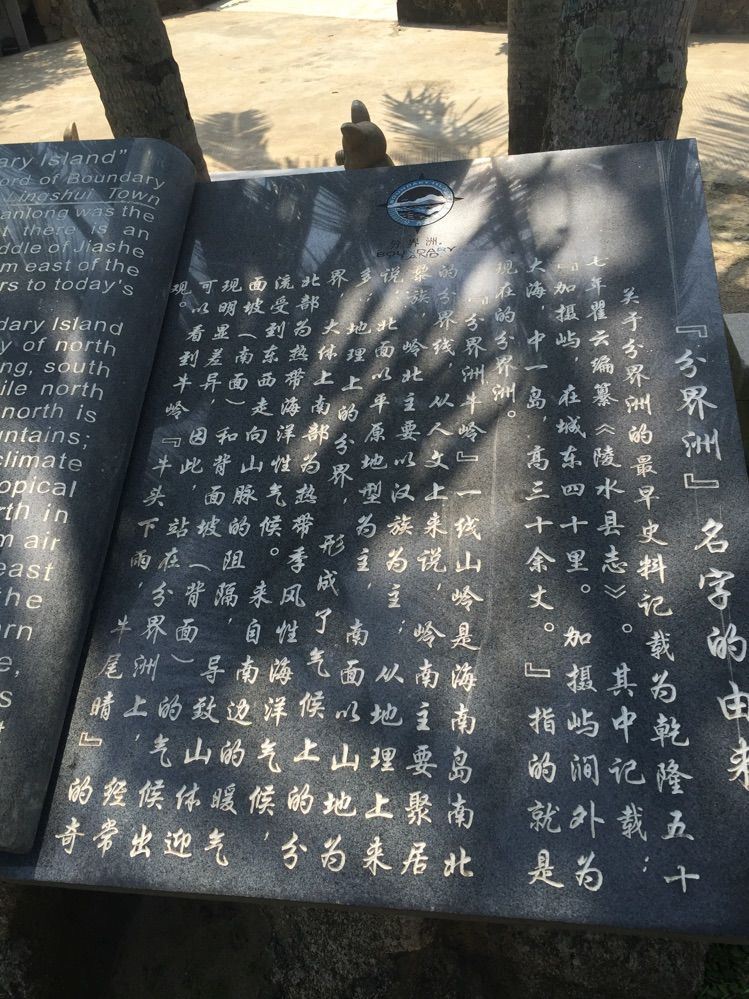 ary Island"
ord of Boundary
Lingshui Town
anlong was the
t there is an
ddle of Jiashe
m east of the
rs to today's
dary Island
y of north
ng, south
ile north
north is
ntains;
climate
opical
rth in
m air
east
the
ern
e,
s
t
分界洲
BOUNDARY
『分界洲』名字的由来
关于分界洲的最早史料记载为乾隆五十
七年瞿云编纂《陵水县志》。其中记载：
『加摄屿，在城东四十里。加摄屿涧外为
大海，中一岛，高三十余丈。』指的就是
现在的分界洲。
『分界洲牛岭』一线山岭是海南岛南北
的分界线，从人文上来说，岭南主要聚居
黎族，岭北主要以汉族为主；从地理上来
说，北面以平原地型为主，南面以山地为
多，地理上的分界，形成了气候上的分
界，大体上南部为热带季风性海洋气候，
北部为热带海洋性气候。来自南边的暖气
流受到东西走向山脉的阻隔，导致山体迎
面坡（南面）和背面坡（背面）的气候出
现明显差异，因此，站在分界洲上，经常
可以看到牛岭『牛头下雨，牛尾晴』的奇
现。